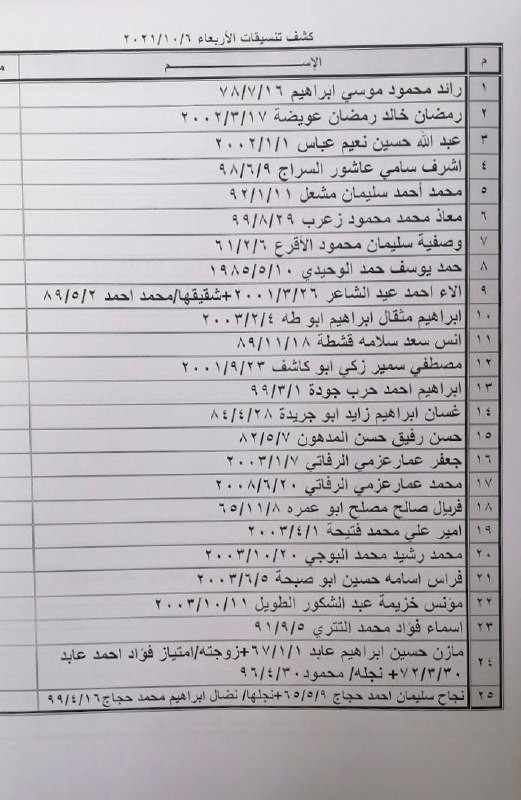 كشف تنسيقات الأربعاء ٢٠٢١/١٠/٦
م الإســـــــــم
١ رائد محمود موسي ابراهيم ٧٨/٧/١٦
٢ رمضان خالد رمضان عويضة ٢٠٠٢/٣/١٧
٣ عبد الله حسين نعيم عباس ٢٠٠٢/١/١
٤ اشرف سامي عاشور السراج ٩٨/٦/٩
٥ محمد أحمد سليمان مشعل ٩٢/١/١١
٦ معاذ محمد محمود زعرب ٩٩/٨/٢٩
٧ وصفية سليمان محمود الأقرع ٦١/٢/٦
٨ حمد يوسف حمد الوحيدي ١٩٨٥/٥/١٠
٩ الاء احمد عيد الشاعر ٢٠٠١/٣/٢٦+شقيقها/محمد احمد ٨٩/٥/٢
١٠ ابراهيم مثقال ابراهيم ابو طه ٢٠٠٣/٢/٤
١١ انس سعد سلامه قشطة ٨٩/١١/١٨
١٢ مصطفي سمير زكي ابو كاشف ٢٠٠١/٩/٢٣
١٣ ابراهيم احمد حرب جودة ٩٩/٣/١
١٤ غسان ابراهيم زايد ابو جريدة ٨٤/٤/٢٨
١٥ حسن رفيق حسن المدهون ٨٢/٥/٧
١٦ جعفر عمارعزمي الرفاتي ٢٠٠٣/١/٧
١٧ محمد عمارعزمي الرفاتي ٢٠٠٨/٦/٢٠
١٨ فريال صالح مصلح ابو عمره ٦٥/١١/٨
١٩ امير علي محمد فتيحة ٢٠٠٣/٤/١
٢٠ محمد رشيد محمد البوجي ٢٠٠٣/١٠/٢٠
٢١ فراس اسامه حسين ابو صبحة ٢٠٠٣/٦/٥
٢٢ مؤنس خزيمة عبد الشكور الطويل ٢٠٠٣/١٠/١١
٢٣ اسماء فؤاد محمد التتري ٩١/٩/٥
٢٤ مازن حسين ابراهيم عابد ٦٧/١/١+زوجته/امتياز فؤاد احمد عابد
٧٢/٣/٣٠+ نجله/ محمود٩٦/٤/٣٠
٢٥ نجاح سليمان احمد حجاج ٦٥/٥/٩+نجلها/ نضال ابراهيم محمد حجاج٩٩/٤/١٦